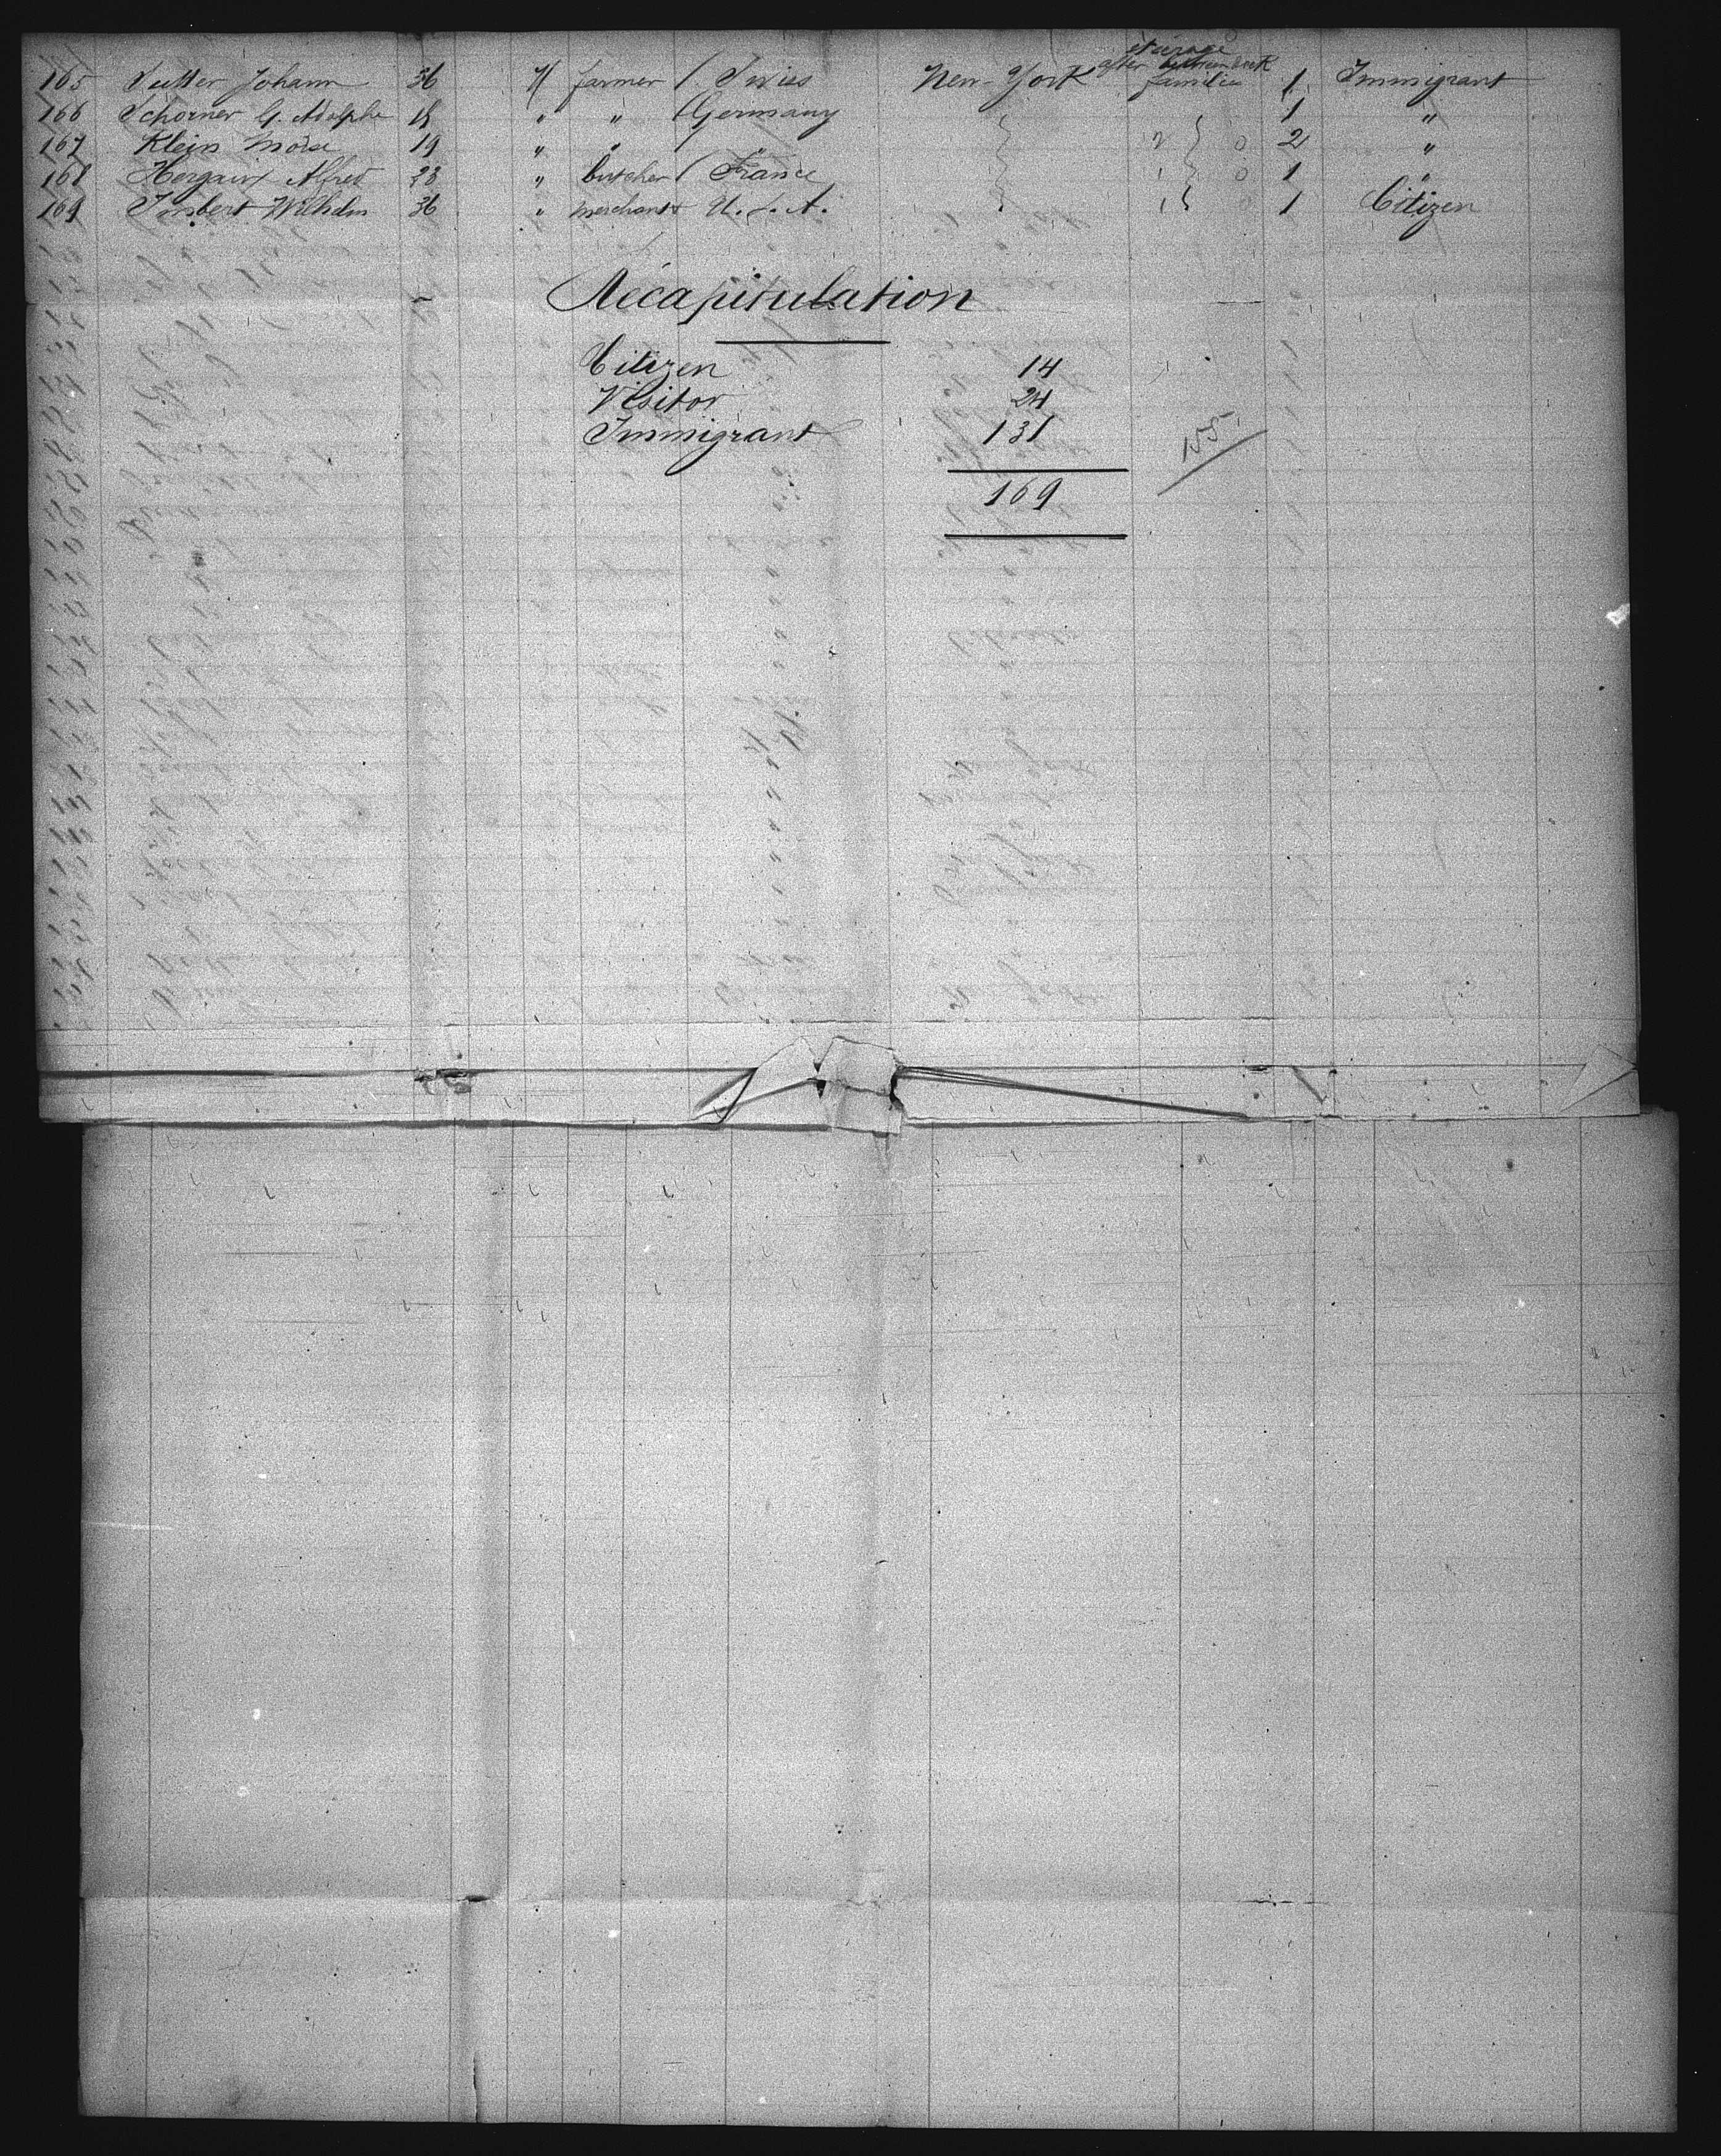 steerage
165 Sutter Johann 36 M farmer Swiss New-York after familie 1 Immigrant
166 Schorner G. Adolphe 18 " " Germany 1 "
167 Klein Moïse 19 " " " 2 0 2 "
168 Alfred 28 " butcher France 1 0 1 "
169 Imbert Wilhelm 36 " merchant U.S.A. 1 0 1 Citizen
Récapitulation
Citizen 14
Visitor 24
Immigrant 131
155
169